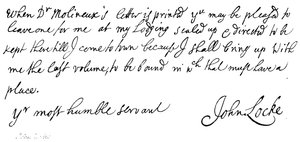 When Dr Molineux's letter is printed yu may be pleased to
leave one for me at my Lodging sealed up & directed to be
kept there till I come to town because I shall bring up with
me the last volume, to be bound in wch that must have a
place.
Yr most humble servant
John Locke